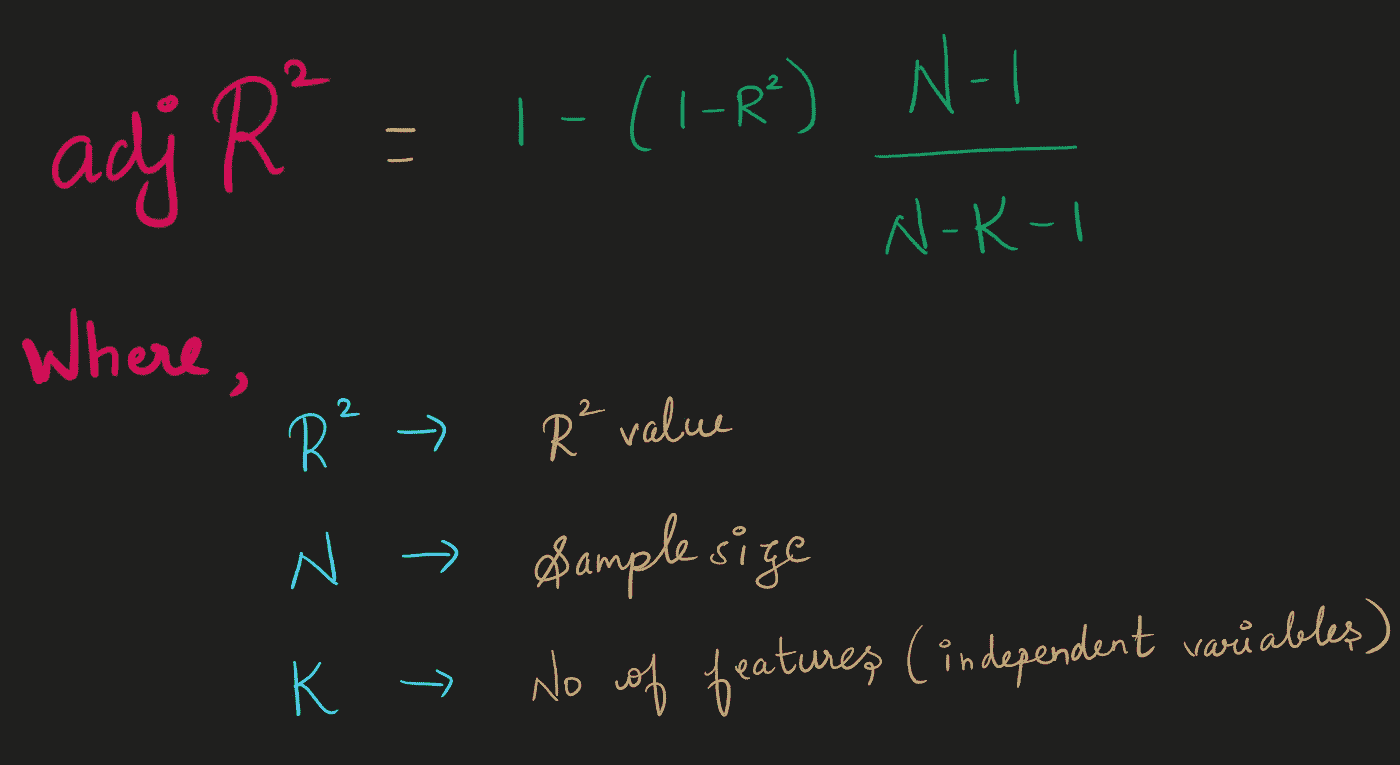 adj R² = 1 - (1-R²) N-1 / N-K-1
Where,
R² → R² value
N → Sample size
K → No of features (independent variables)